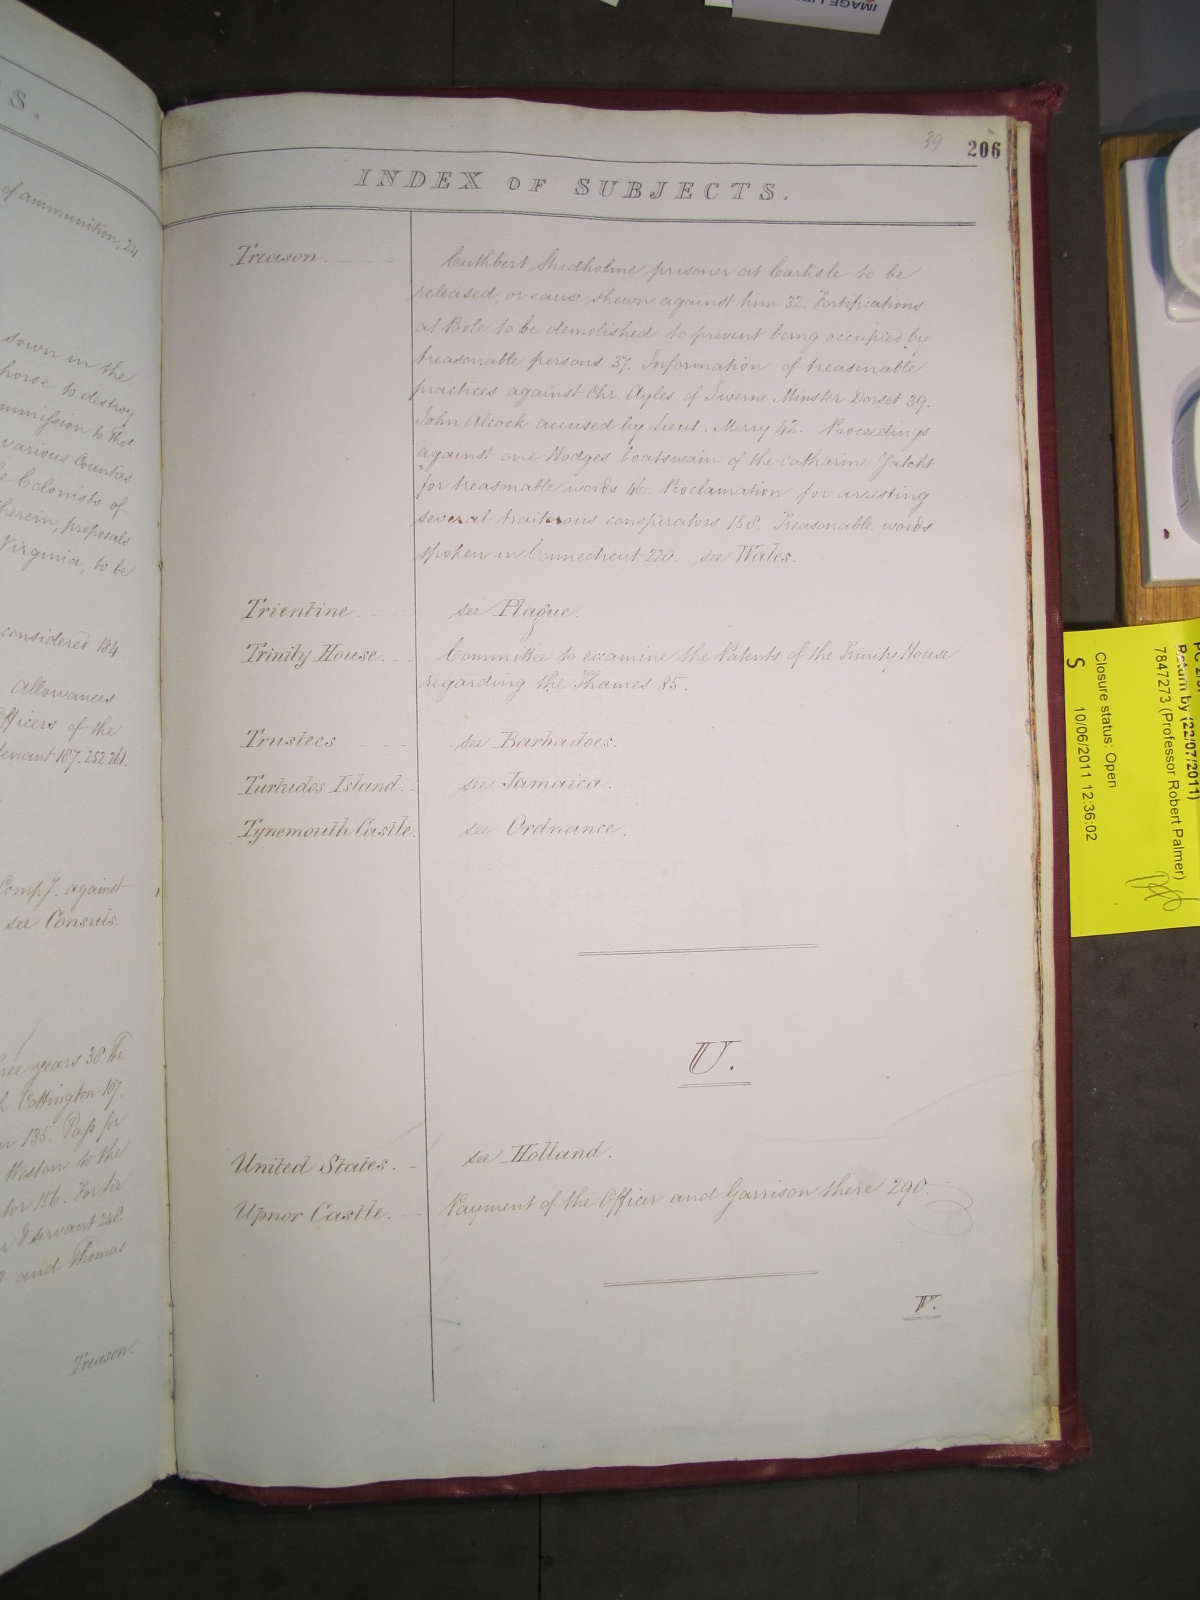 S.
of ammunition, 24.
down in the
horse to destroy
ommission to Thos.
various Counties
Colonists of
herein, proposals
Virginia, to be
considered 184
Allowances
Officers of the
tenant 187. 252 261.
Comp.y. against
see Consuls.
three years 38. The
Cottington 107.
135. Pass for
Weston to the
156. For Sir
& servant 248.
and Thomas
Treason.
39
206
INDEX OF SUBJECTS.
Treason. Cuthbert Studholme prisoner at Carlisle to be
released, or cause shewn against him 32. Fortifications
at Poole to be demolished to prevent being occupied by
treasonable persons 37. Information of treasonable
practices against Chr. Ayles of Iwerne Minster Dorset 39.
John Alcock accused by Lieut. Merry 42. Proceedings
against one Hodges boatswain of the Catharine Yatcht
for treasonable words 46. Proclamation for arresting
several traitorous conspirators 158. Treasonable words
spoken in Connecticut 220. see Wales.
Trientine. see Plague.
Trinity House. Committee to examine the Patents of the Trinity House
regarding the Thames 85.
Trustees see Barbadoes.
Turtudos Island. see Jamaica.
Tynemouth Castle. see Ordnance.
U.
United States. see Holland.
Upnor Castle. Payment of the Officer and Garrison there 290.
V.
Return by (22/07/2011)
7847273 (Professor Robert Palmer)
Closure status: Open
S 10/06/2011 12:36:02